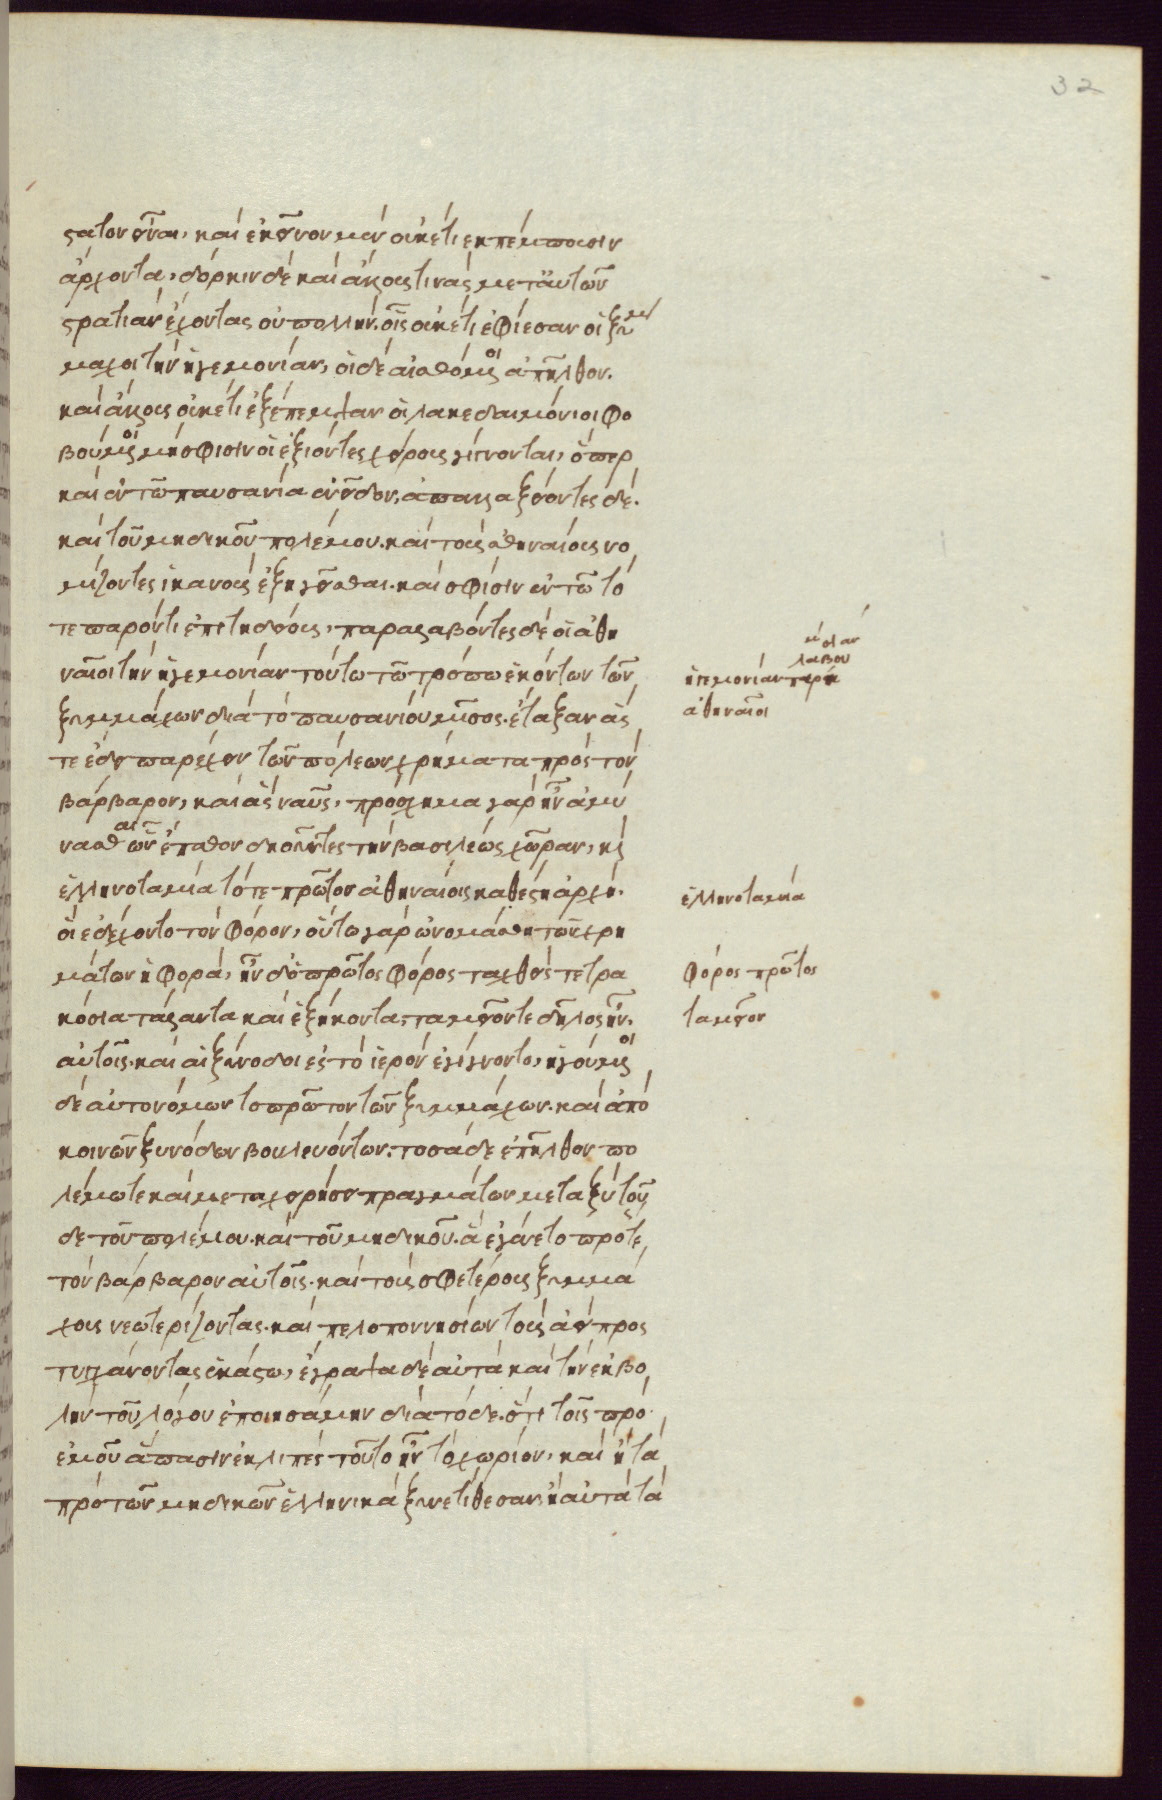 στατον εἶναι, καὶ ἐκεῖνον μὲν οὐκέτι ἐκπέμπουσιν
ἄρχοντα, δόρκιν δὲ καὶ ἄλλους τινὰς μετ' αὐτῶν
στρατιὰν ἔχοντας οὐ πολλήν. οἷς οὐκέτι ἐφίεσαν οἱ ξύμ
μαχοι τὴν ἡγεμονίαν, οἱ δὲ αἰσθόμενοι ἀπῆλθον.
καὶ ἄλλους οὐκέτι ἐξέπεμψαν οἱ λακεδαιμόνιοι φο
βούμενοι μὴ σφίσιν οἱ ἐξιόντες χείρους γίγνονται, ὅπερ
καὶ ἐν τῶ παυσανία ἐνεῖδον, ἀπαλλαξείοντες δὲ.
καὶ τοῦ μηδικοῦ πολέμου. καὶ τοὺς ἀθηναίους νο
μίζοντες ἱκανοὺς ἐξηγεῖσθαι. καὶ σφίσιν ἐν τῶ τό
τε παρόντι ἐπιτηδείους, παραλαβόντες δὲ οἱ ἀθη
ναῖοι τὴν ἡγεμονίαν τούτω τῶ τρόπω ἑκόντων τῶν
ξυμμάχων διὰ τὸ παυσανίου μῖσος. ἔταξαν ἅς
τε ἔδει παρέχειν τῶν πόλεων χρήματα πρὸς τὸν
βάρβαρον, καὶ ἃς ναῦς, πρόσχημα γὰρ ἦν ἀμύ
νασθαι ὧν ἔπαθον δηοῦντες τὴν βασιλέως χώραν, καὶ
ἑλληνοταμίαι τότε πρῶτον ἀθηναίοις κατέστη ἀρχή.
οἳ ἐδέχοντο τὸν φόρον, οὕτω γὰρ ὠνομάσθη τῶν χρη
μάτων ἡ φορά, ἦν δ' ὁ πρῶτος φόρος ταχθεὶς τετρα
κόσια τάλαντα καὶ ἑξήκοντα, ταμιεῖόν τε δῆλος ἦν.
αὐτοῖς. καὶ αἱ ξύνοδοι ἐς τὸ ἱερὸν ἐγίγνοντο, ἡγούμενοι
δὲ αὐτονόμων τὸ πρῶτον τῶν ξυμμάχων. καὶ ἀπὸ
κοινῶν ξυνόδων βουλευόντων. τοσάδε ἐπῆλθον πο
λέμω τε καὶ μεταχειρήσει πραγμάτων μεταξὺ τοῦ
δε τοῦ πολέμου. καὶ τοῦ μηδικοῦ. ἃ ἐγένετο πρός τε
τὸν βάρβαρον αὐτοῖς. καὶ τοὺς σφετέρους ξυμμά
χους νεωτερίζοντας. καὶ πελοποννησίων τοὺς ἀεὶ προς
τυγχάνοντας ἑκάστω, ἔγραψα δὲ αὐτὰ καὶ τὴν ἐκβο
λὴν τοῦ λόγου ἐποιησάμην διὰ τόδε. ὅτι τοῖς πρὸ
ἐμοῦ ἅπασιν ἐκλιπὲς τοῦτο ἦν τὸ χωρίον, καὶ ἢ τὰ
πρὸ τῶν μηδικῶν ἑλληνικὰ ξυνετίθεσαν. ἢ αὐτὰ τὰ
ἀθηναῖοι
ἑλληνοταμίαι
φόρος πρῶτος
ταμιεῖον
32